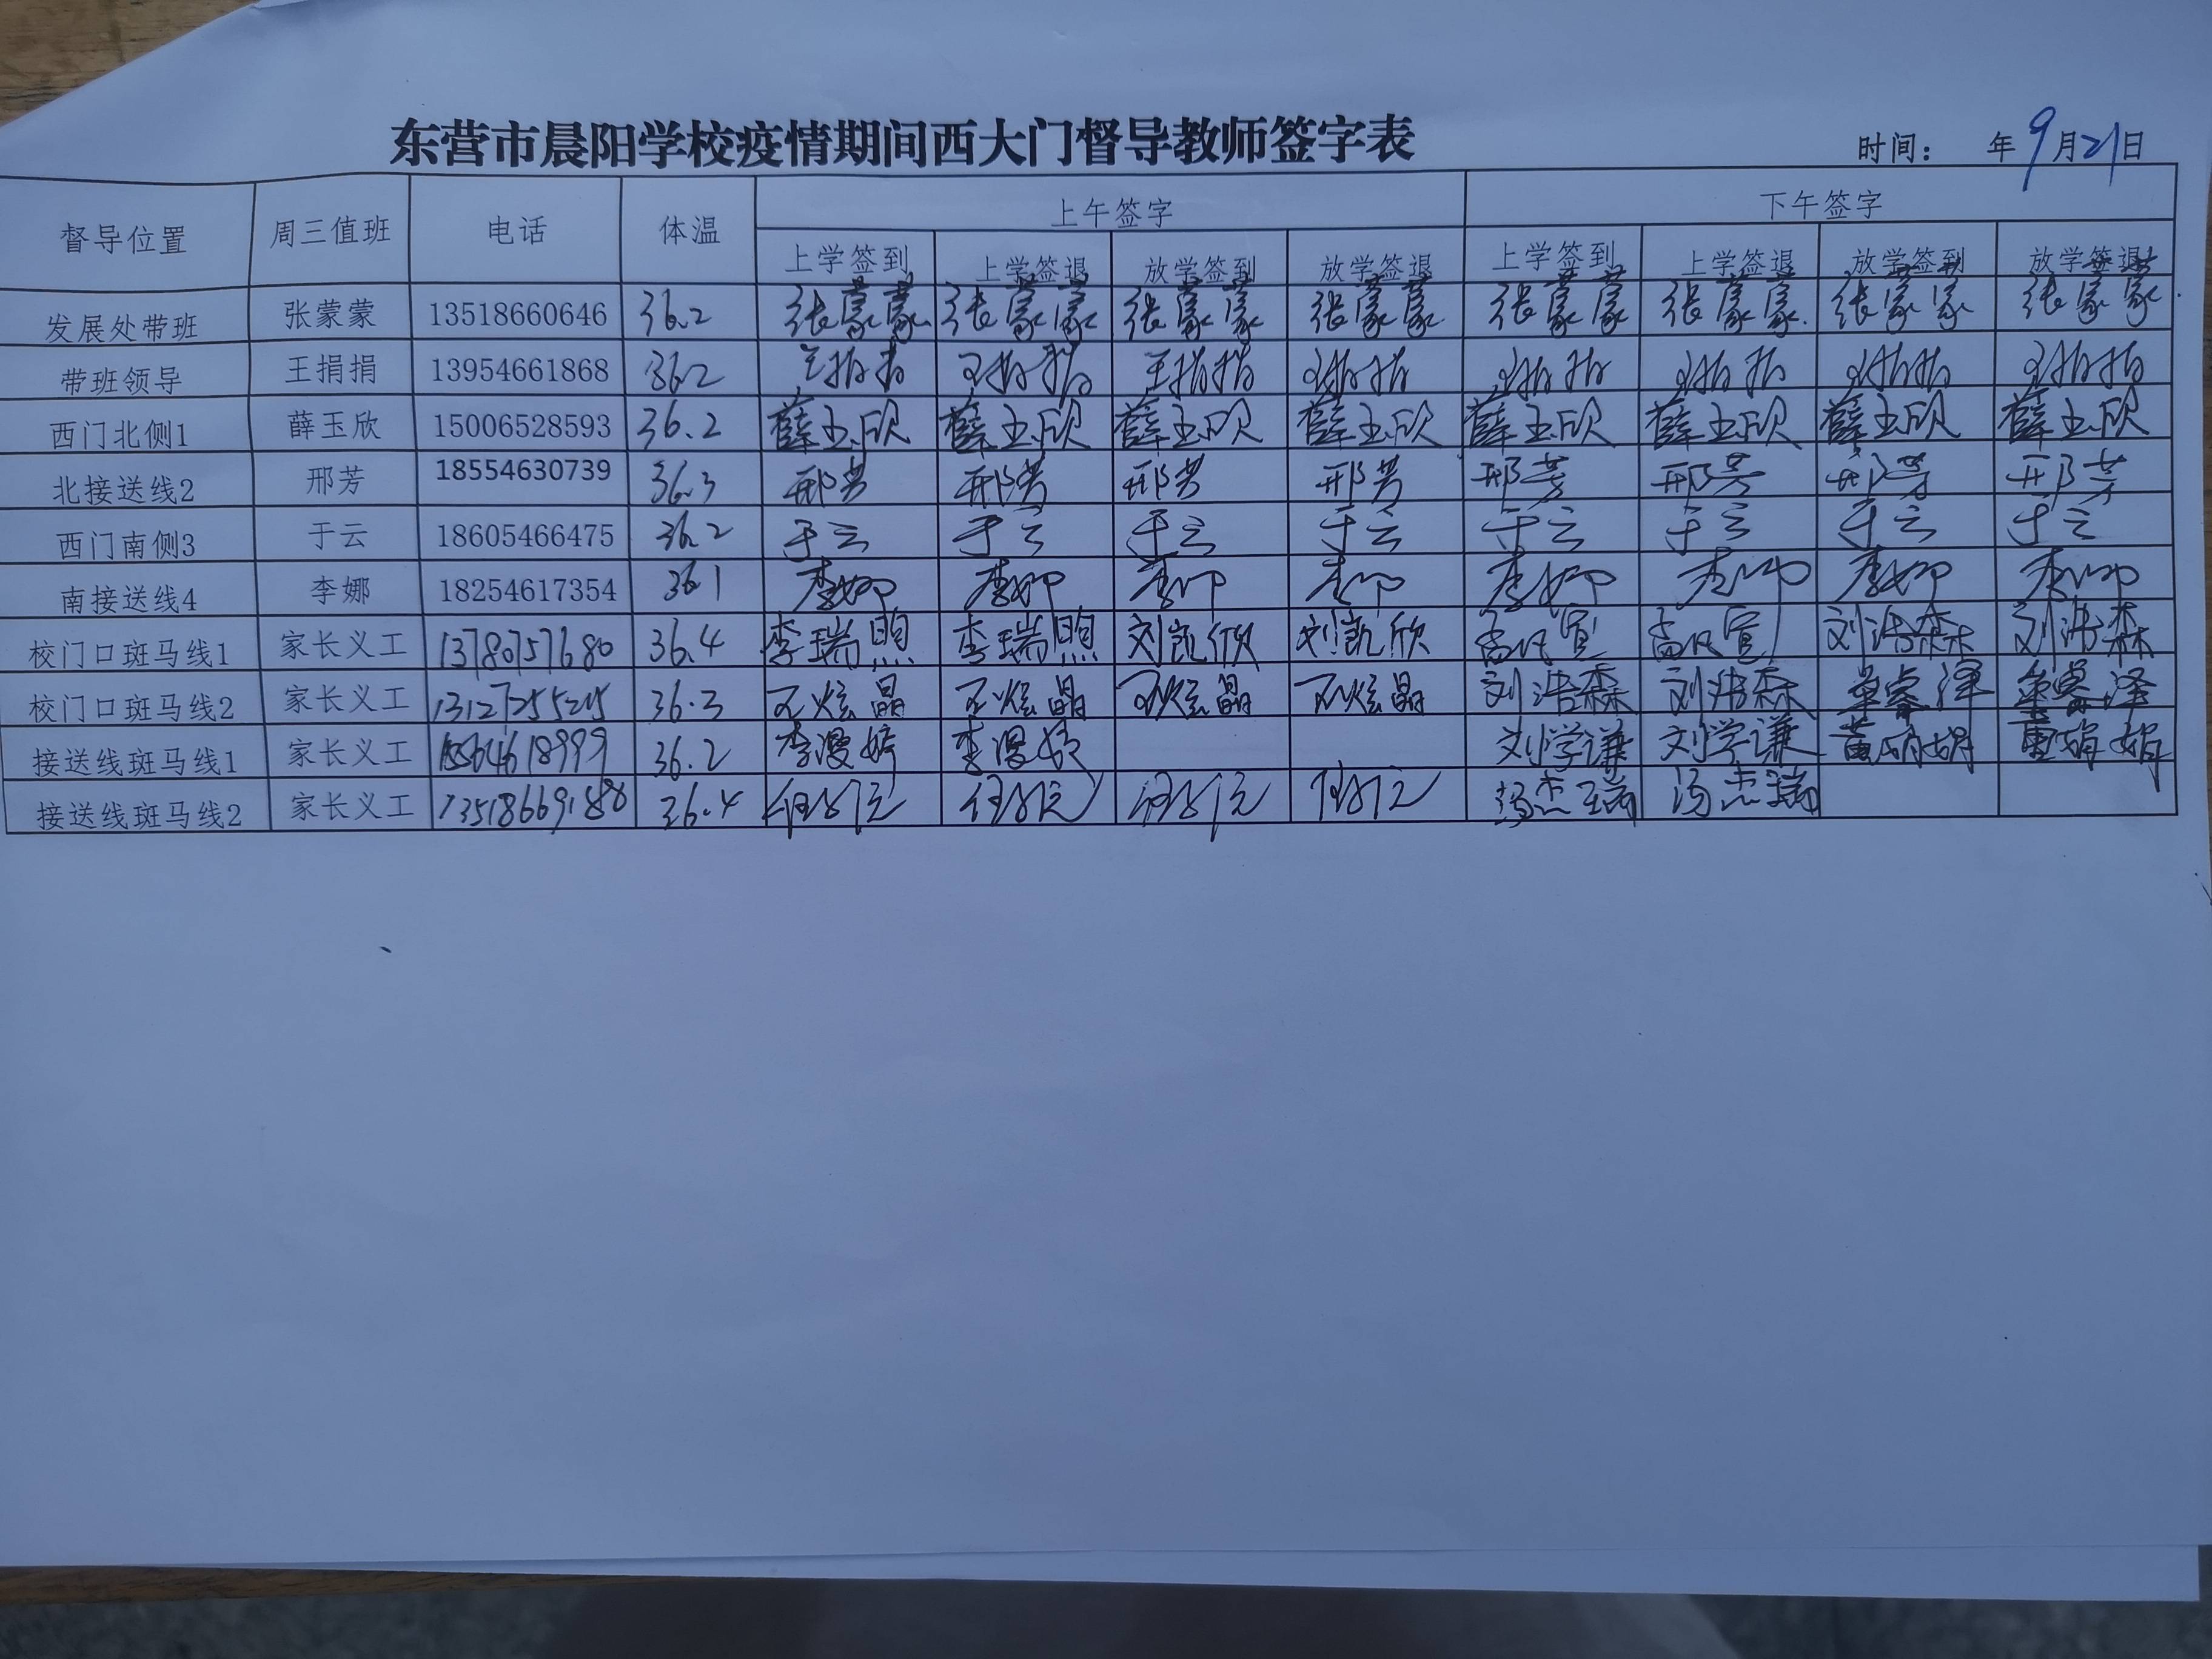 东营市晨阳学校疫情期间西大门督导教师签字表
时间： 年9月21日
督导位置 周三值班 电话 体温 上午签字 下午签字
上学签到 上学签退 放学签到 放学签退 上学签到 上学签退 放学签到 放学签退
发展处带班 张蒙蒙 13518660646 36.2 张蒙蒙 张蒙蒙 张蒙蒙 张蒙蒙 张蒙蒙 张蒙蒙 张蒙蒙 张蒙蒙
带班领导 王捐捐 13954661868 36.2 王捐捐 王捐捐 王捐捐 王捐捐 王捐捐 王捐捐 王捐捐 王捐捐
西门北侧1 薛玉欣 15006528593 36.2 薛玉欣 薛玉欣 薛玉欣 薛玉欣 薛玉欣 薛玉欣 薛玉欣 薛玉欣
北接送线2 邢芳 18554630739 36.3 邢芳 邢芳 邢芳 邢芳 邢芳 邢芳 邢芳 邢芳
西门南侧3 于云 18605466475 36.2 于云 于云 于云 于云 于云 于云 于云 于云
南接送线4 李娜 18254617354 36.1 李娜 李娜 李娜 李娜 李娜 李娜 李娜 李娜
校门口斑马线1 家长义工 13780757680 36.4 李瑞煦 李瑞煦 刘凯欣 刘凯欣 刘浩森 刘浩森
校门口斑马线2 家长义工 36.3 刘浩森 刘浩森 董睿泽 董睿泽
接送线斑马线1 家长义工 36.2 刘学谦 刘学谦 董娟娟 董娟娟
接送线斑马线2 家长义工 13518669188 36.4 冯杰瑞 冯杰瑞